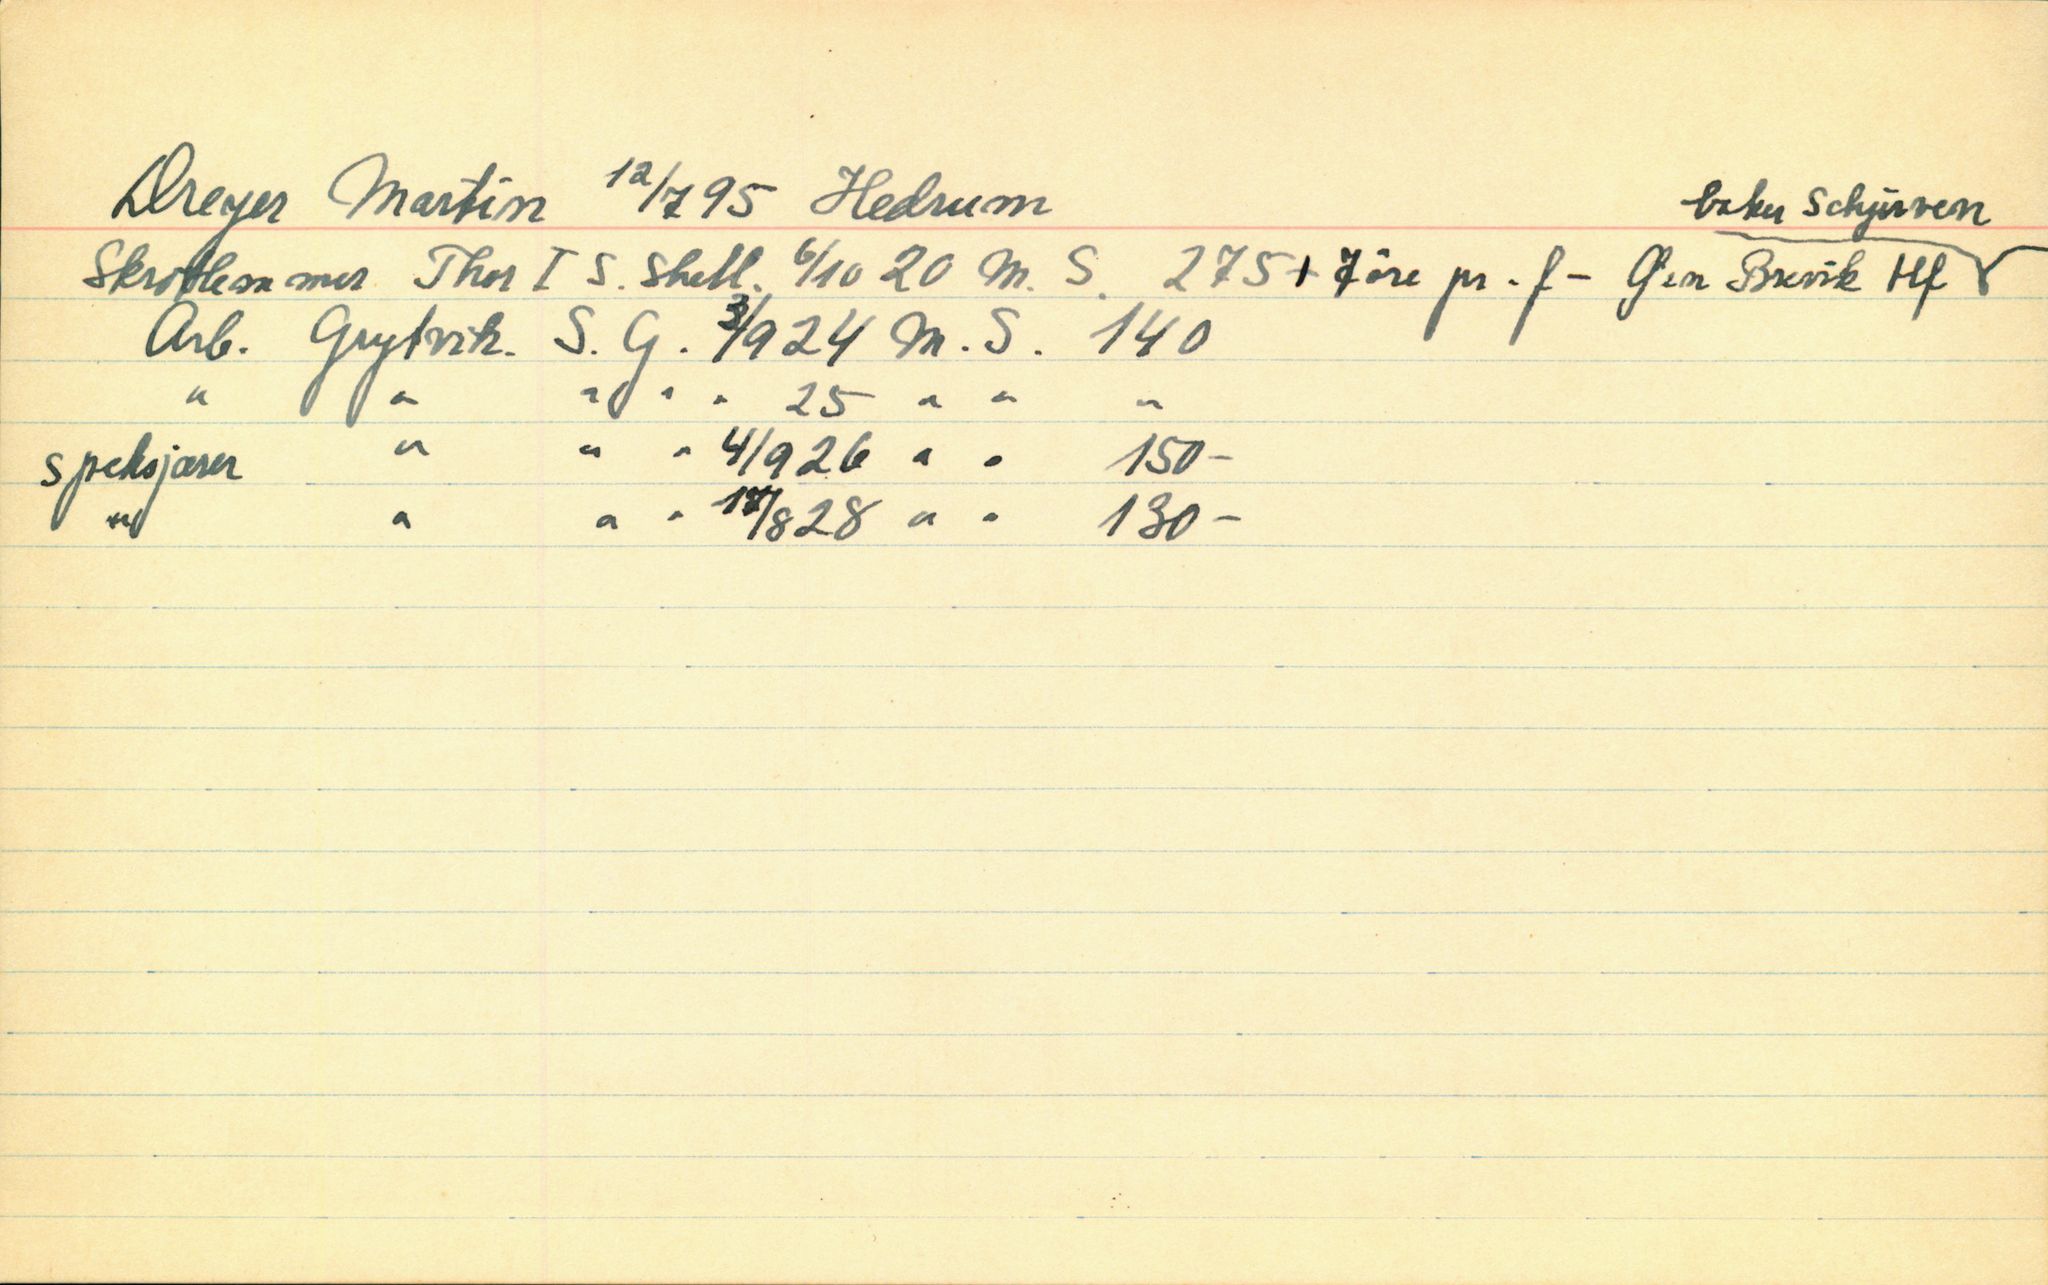 Dreyer Martin 12/7 95 Hedrum
baker Schjerven
Skrotlemmer Thor I S. Shetl. 6/10 20 M. S. 275 + 7 öre pr. f - Gen Brevik Hf
Arb. Grytvik. S. G. 3/9 24 M. S. 140
" " " " " 25 " " "
speksjærer " " " 4/9 26 " " 150-
" " " " 17/8 28 " " 130-